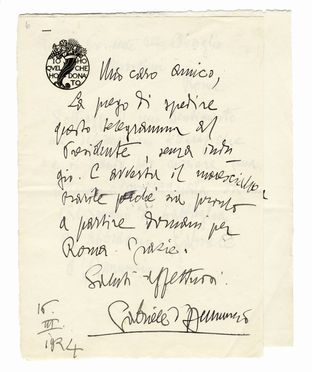 IO HO
QUEL CHE
HO DONATO
Mio caro amico,
La prego di spedire
questo telegramma al
Presidente, senza indu
gio. E avverta il
perché sia pronto
a partire domani per
Roma. Grazie.
Saluti affettuosi
Gabriele d'Annunzio
16
III
1924